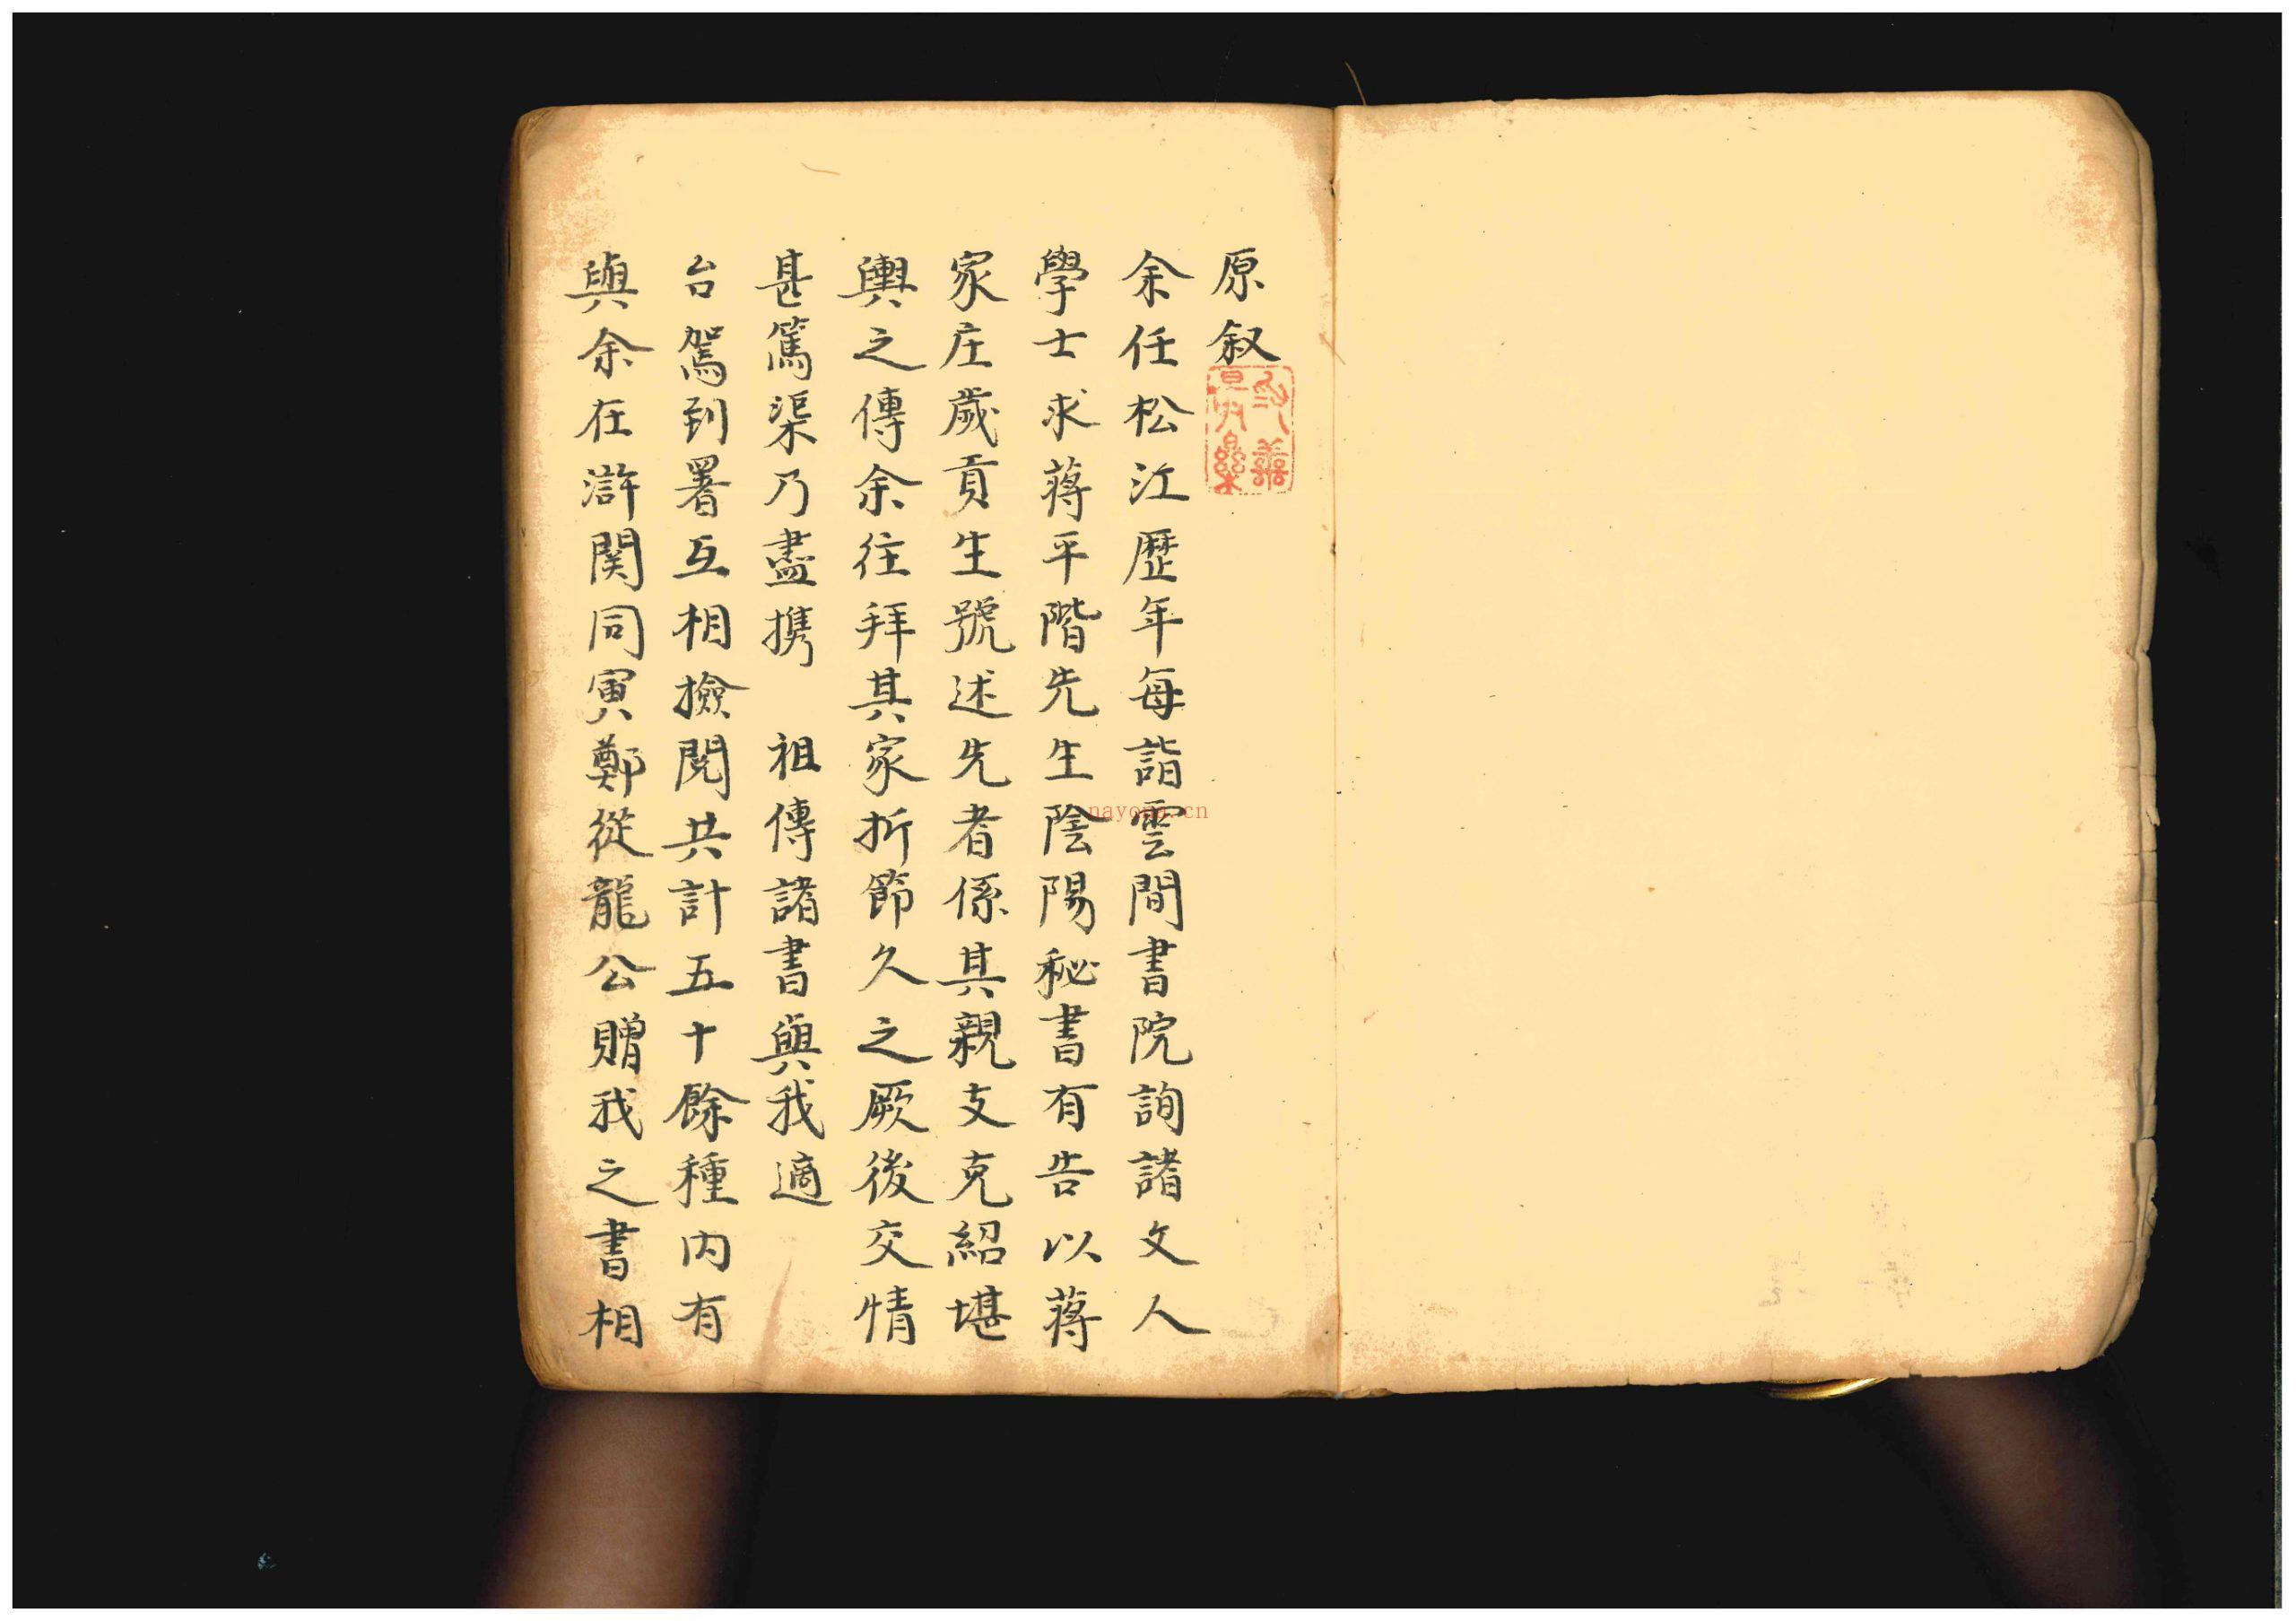 原叙
余任松江歷年每詣雲間書院詢諸文人
學士求蔣平階先生陰陽秘書有告以蔣
家庄歲貢生號述先者係其親支克紹堪
輿之傳余往拜其家折節久之厥後交情
甚篤渠乃盡携　祖傳諸書與我適
台駕到署互相撿閱共計五十餘種内有
與余在滸関同寅鄭從龍公贈我之書相
nayona.cn